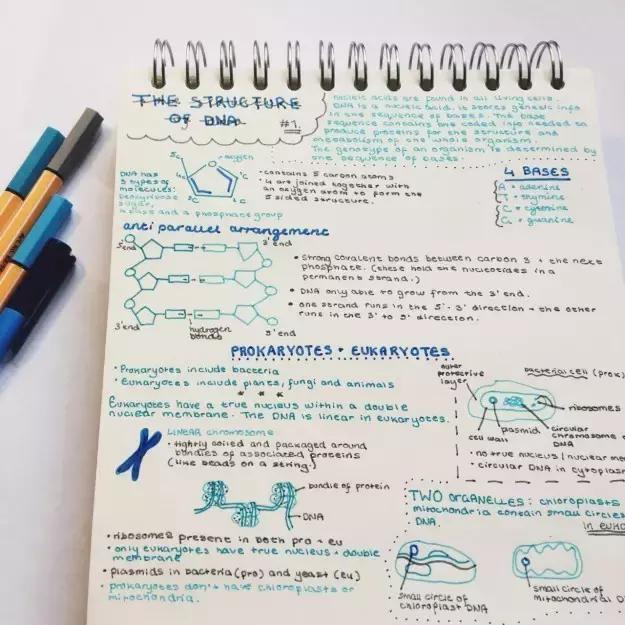 THE STRUCTURE
OF DNA
#1.
nucleic acids are found in all living cells.
DNA is a nucleic acid. it stores genetic info
in the sequence of bases. The base
sequence contains the coded info needed to
produce proteins for the structure and
metabolism of the whole organism.
The genotype of an organism is determined by
the sequence of bases.
DNA has
3 types of
molecules:
deoxyribose
sugar,
a base and a phosphate group
oxygen
• contains 5 carbon atoms
• 4 are joined together with
an oxygen atom to form the
5 sided structure.
4 BASES
A = adenine
T = thymine
C = cytosine
G = guanine
anti parallel arrangement
5' end
3' end
3' end
hydrogen
bonds
5' end
• strong covalent bonds between carbon 3 + the next
phosphate. (these hold the nucleotides in a
permanent strand.)
• DNA only able to grow from the 3' end.
• one strand runs in the 5'- 3' direction + the other
runs in the 3' to 5' direction.
PROKARYOTES + EUKARYOTES
• Prokaryotes include bacteria
• Eukaryotes include plants, fungi and animals
Eukaryotes have a true nucleus within a double
nuclear membrane. The DNA is linear in eukaryotes.
LINEAR chromosome
• tightly coiled and packaged around
bundles of associated proteins
(like beads on a string.)
bundle of protein
DNA
• ribosomes present in both pro + eu
• only eukaryotes have true nucleus + double
membrane
• plasmids in bacteria (pro) and yeast (eu)
• prokaryotes don't have chloroplasts or
mitochondria.
bacterial cell (prok)
outer
protective
layer
ribosomes
plasmid
circular
chromosome
cell wall
• no true nucleus / nuclear
• circular DNA in cytoplasm
TWO ORGANELLES: chloroplasts
mitochondria contain small circles
DNA.
in
small circle of
chloroplast DNA
small circle of
mitochondrial